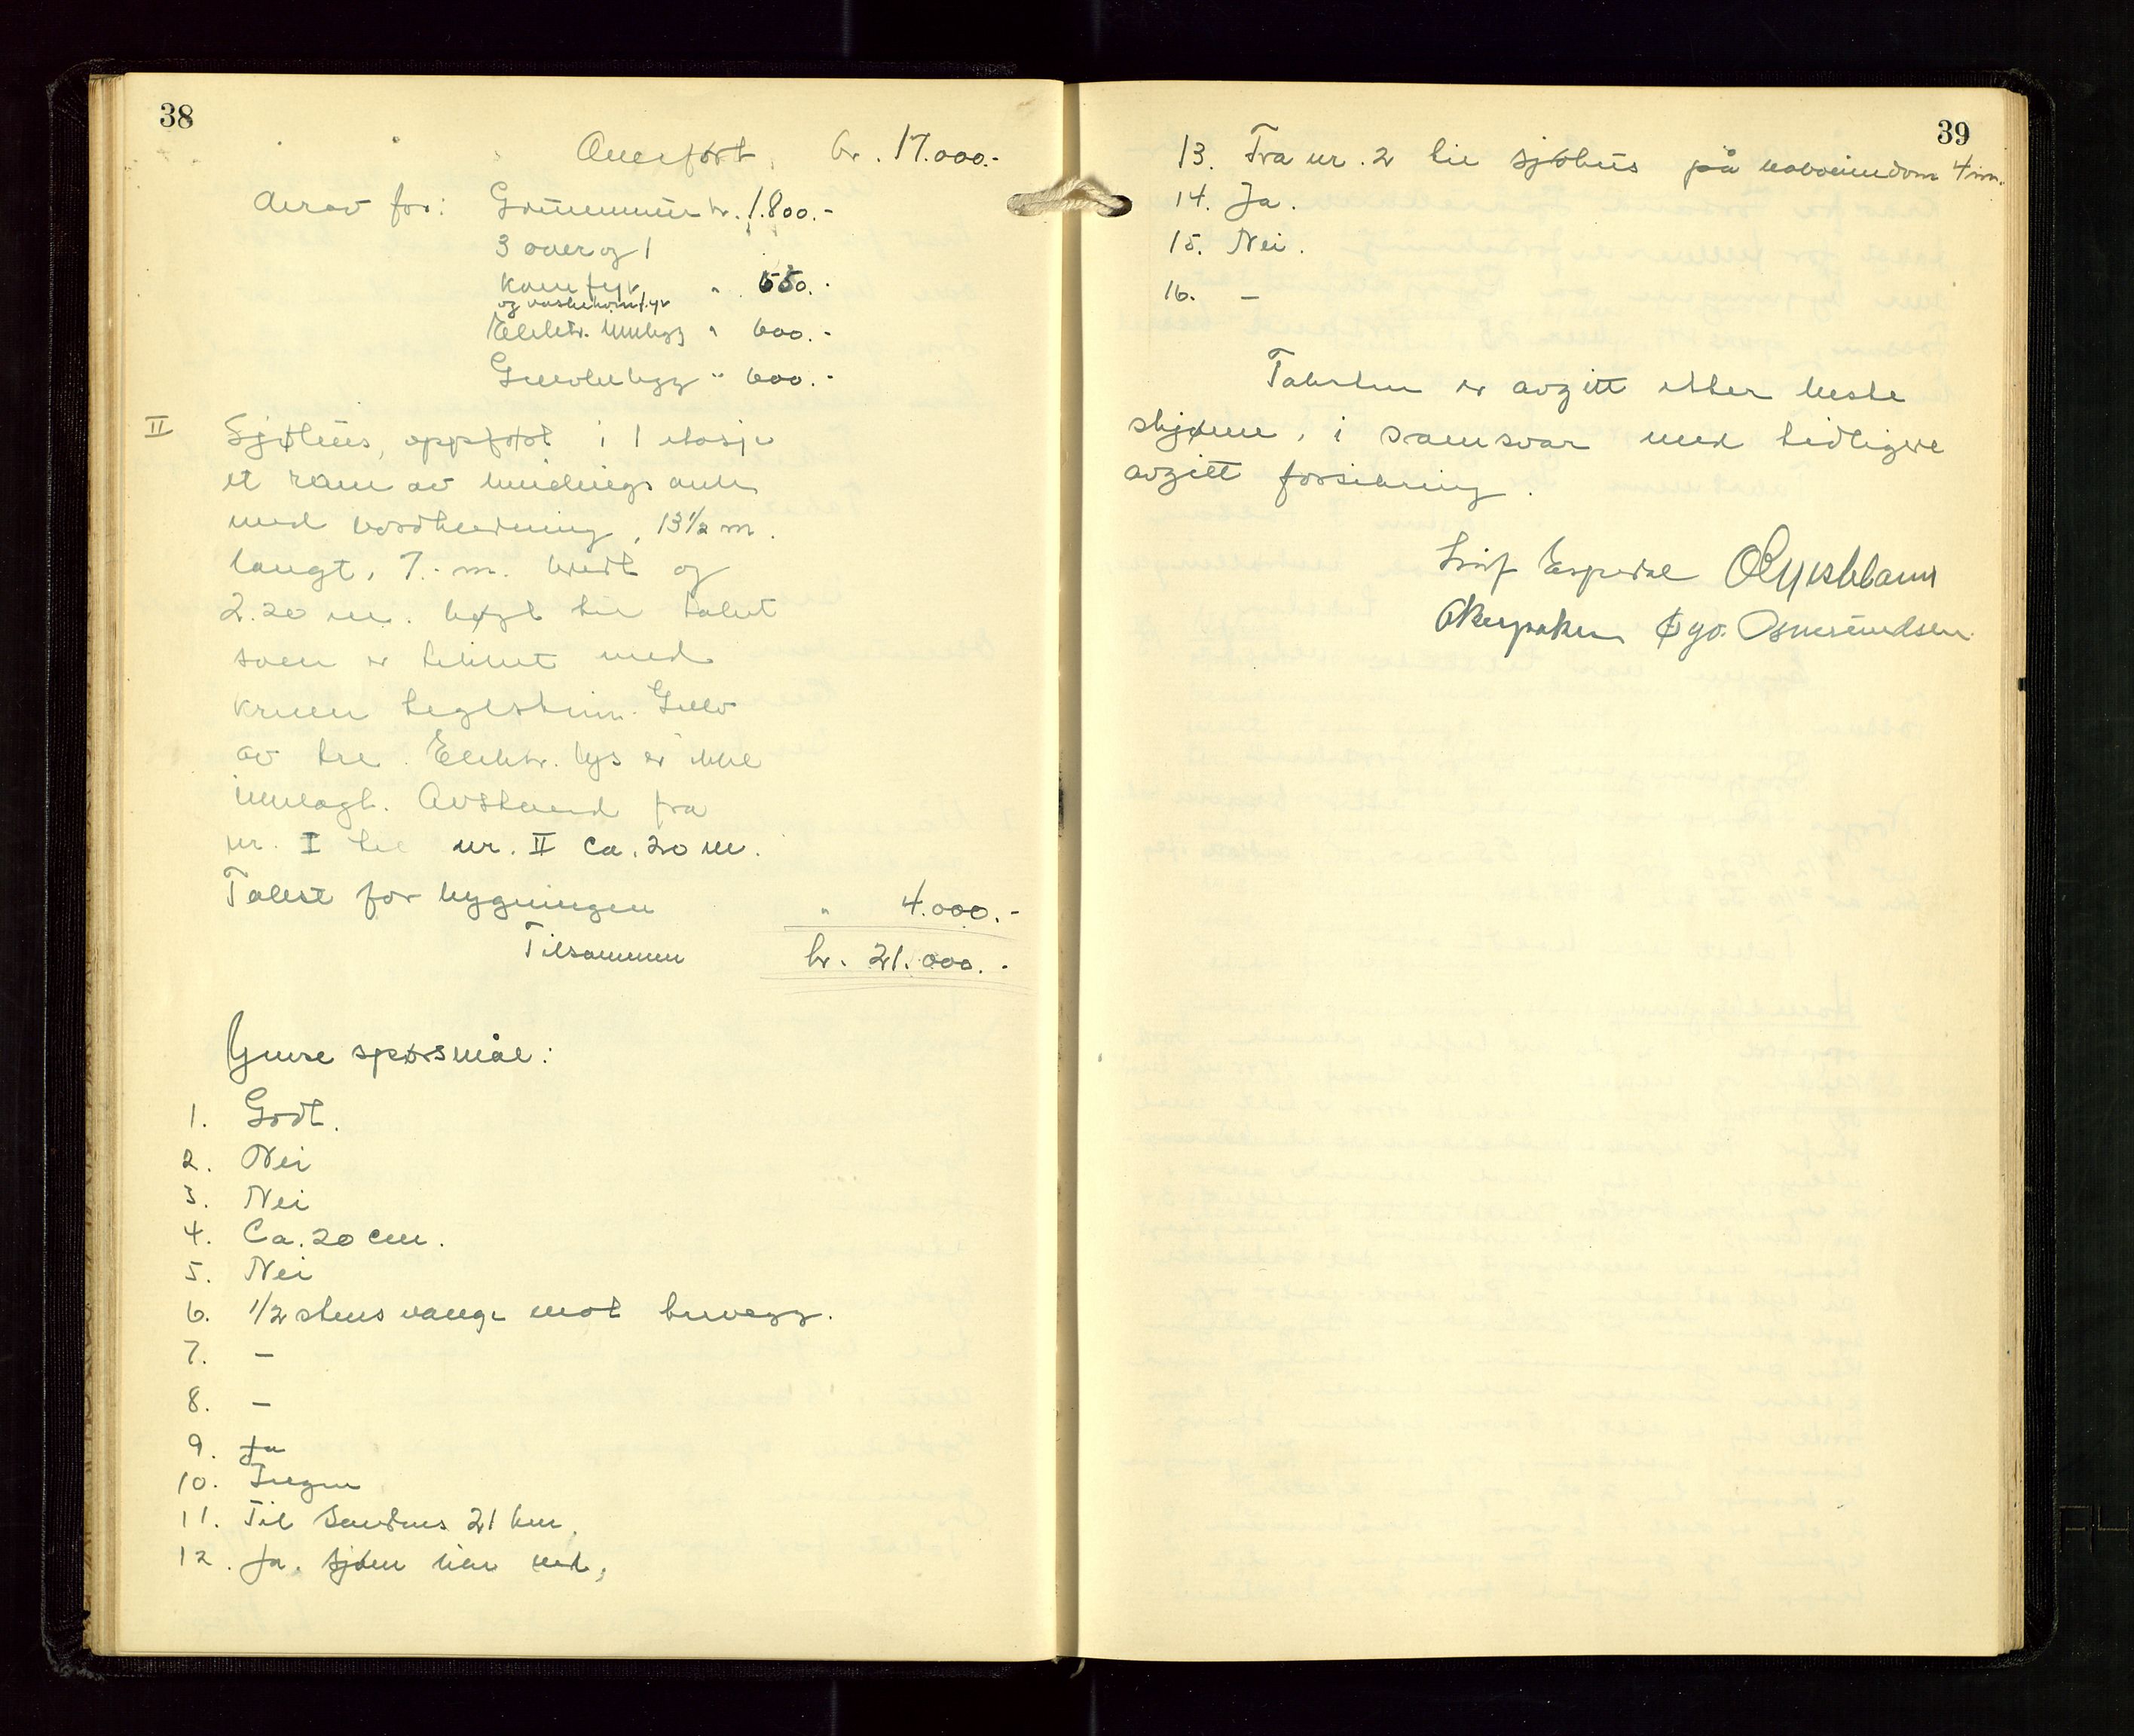 38
Overført kr. 17.000.-
Herav for: Grunnmur kr. 1.800.-
3 ovner og 1
komfyr " 550.-
og vaskekomfyr
Elektr. innlegg " 600.-
Gulvbelegg " 600.-
II Sjøhus, oppført i 1 etasje
et rom av bindingsverk
med bordkledning, 13½ m.
langt, 7.- m. bredt og
2.20 m. høgt til taket
som er tekket med
krum teglstein. Gulv
av tre. Elektr. lys er ikke
innlagt. Avstand fra
nr. I til nr. II ca. 20 m.
Takst for bygningen " 4.000.-
Tilsammen kr. 21.000.-
Øvrige spørsmål:
1. Godt.
2. Nei
3. Nei
4. Ca. 20 cm.
5. Nei
6. 1/2 stens vange mot trevegg.
7. -
8. -
9. Ja
10. Ingen
11. Til Sandnes 21 km.
12. Ja. Sjøen like ved,
39
13. Fra nr. 2 til sjøhus på naboeiendom 4 m.
14. Ja.
15. Nei.
16. -
Taksten er avgitt etter beste
skjønn, i samsvar med tidligere
avgitt forsikring.
Leif Espedal
Osmundsen